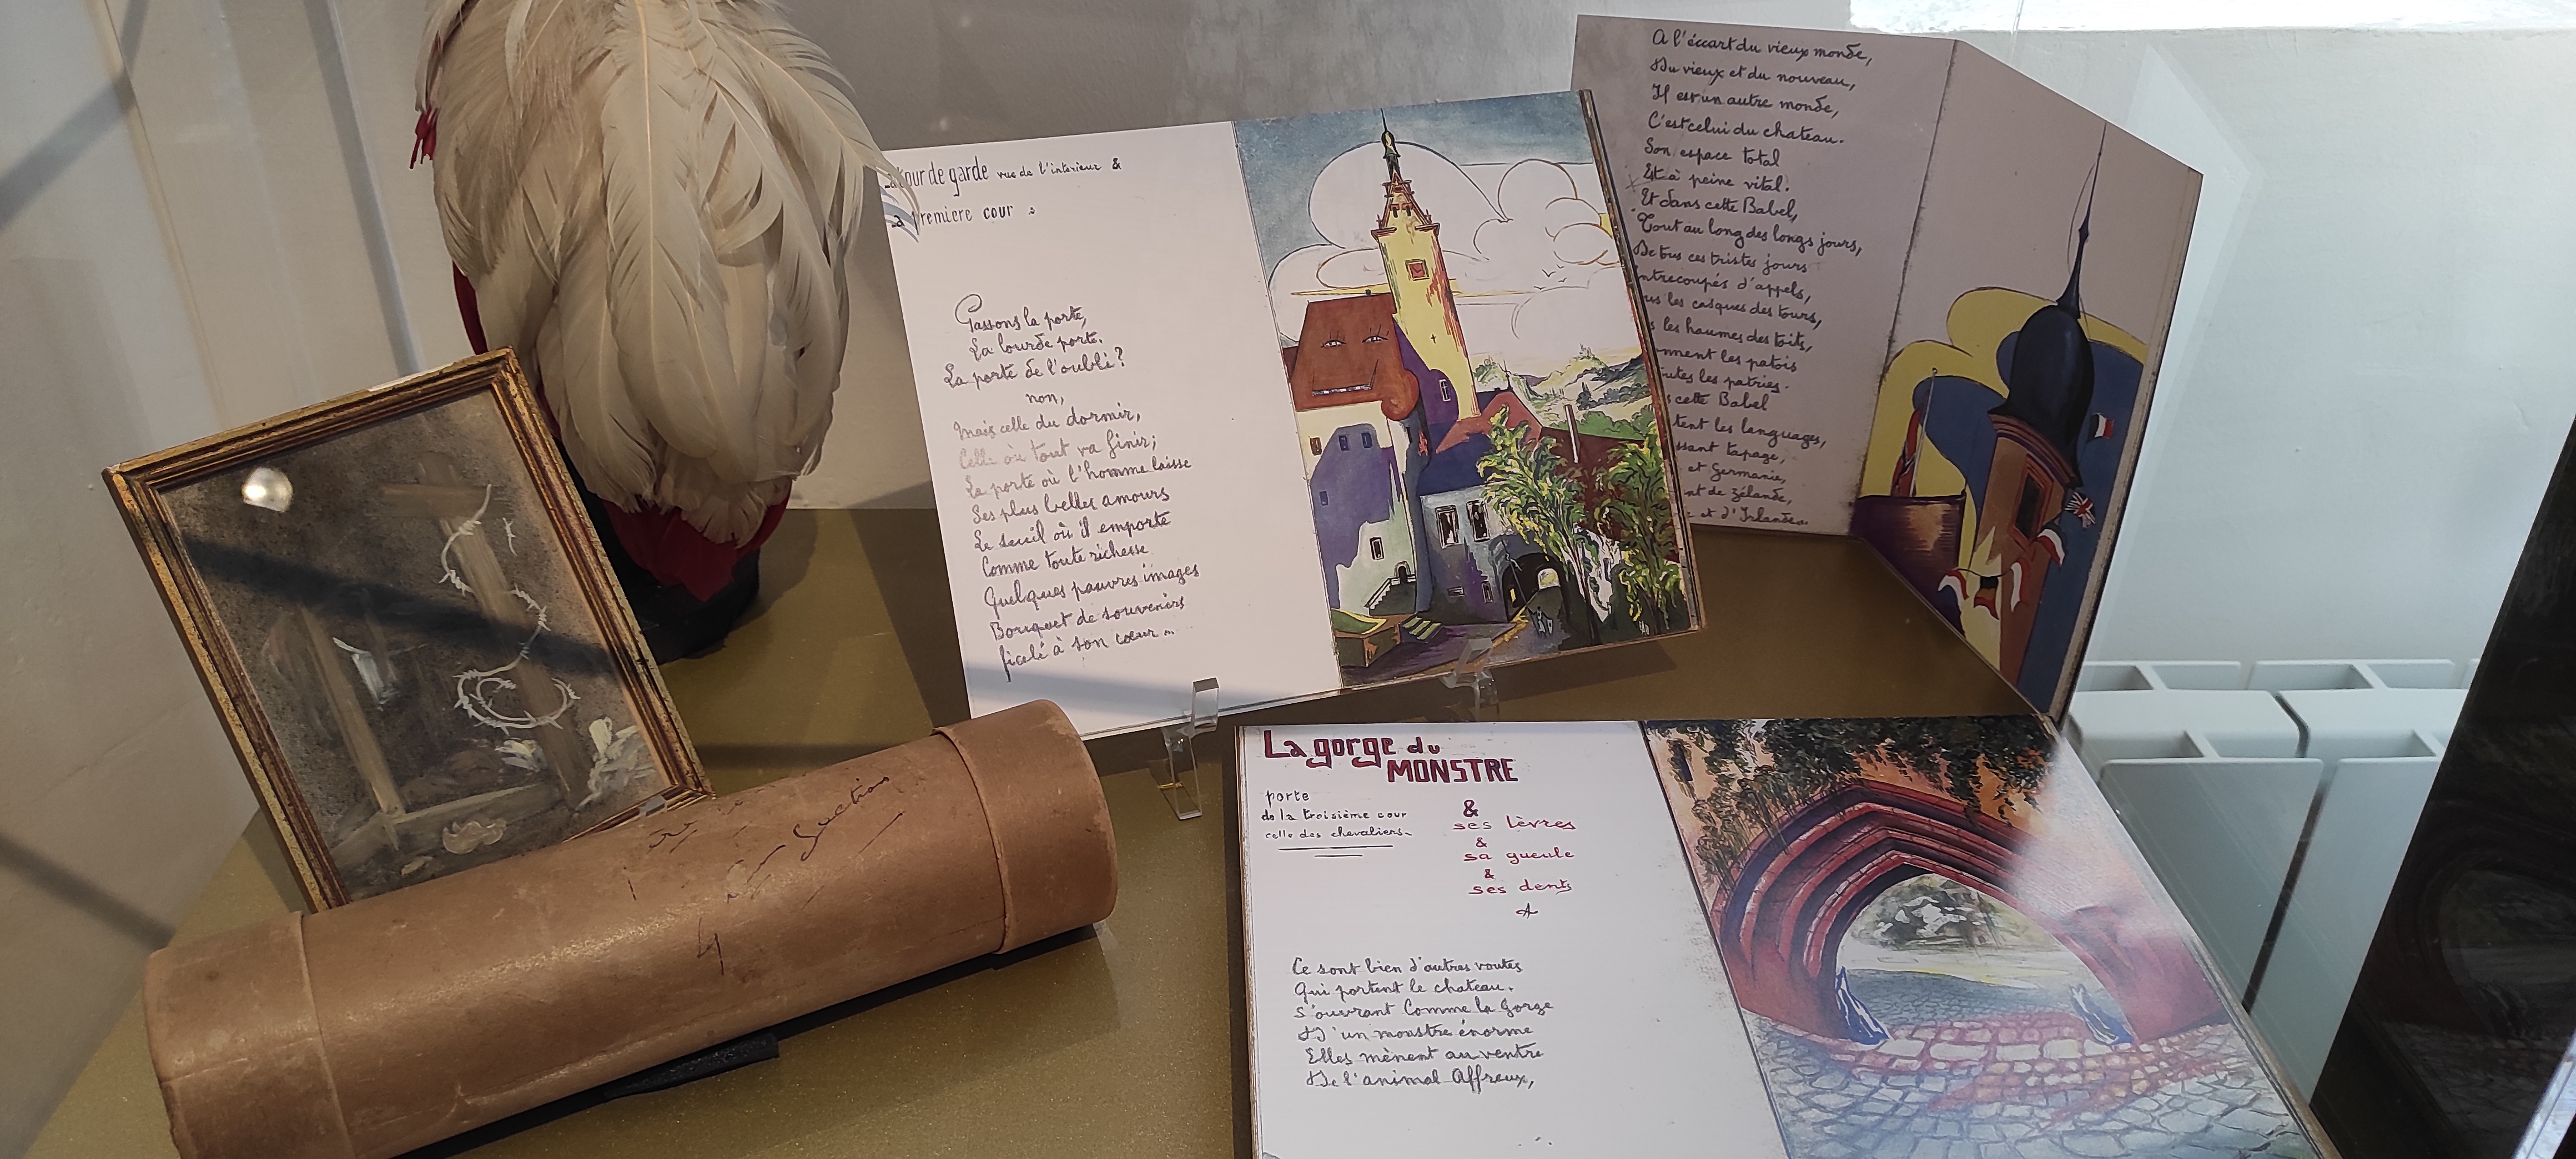 La tour de garde vue de l'interieur &
La premiere cour
Passons la porte,
La lourde porte.
La porte de l'oubli?
non,
Mais celle du dormir,
Celle où tout va finir;
La porte où l'homme laisse
Ses plus belles amours
Le seuil où il emporte
Comme toute richesse
Quelques pauvres images
Bouquet de souvenirs
ficelé à son cœur ...
A l'écart du vieux monde,
Du vieux et du nouveau,
Il est un autre monde,
C'est celui du chateau.
Son espace total
Est à peine vital.
Et dans cette Babel,
Tout au long des longs jours,
De tous ces tristes jours
ntrecoupés d'appels,
us les casques des tours,
s les haumes des toits,
nnent les patois
utes les patries.
s cette Babel
tent les languages,
ssant tapage,
et Germanie,
nt de Zélande,
et d'Irlande.
La gorge du
MONSTRE
porte
de la troisième cour
celle des chevaliers.
&
ses lèvres
&
sa gueule
&
ses dents
Ce sont bien d'autres voutes
Qui portent le chateau.
S'ouvrant Comme la gorge
D'un monstre énorme
Elles mènent au ventre
De l'animal Affreux,
Section
4